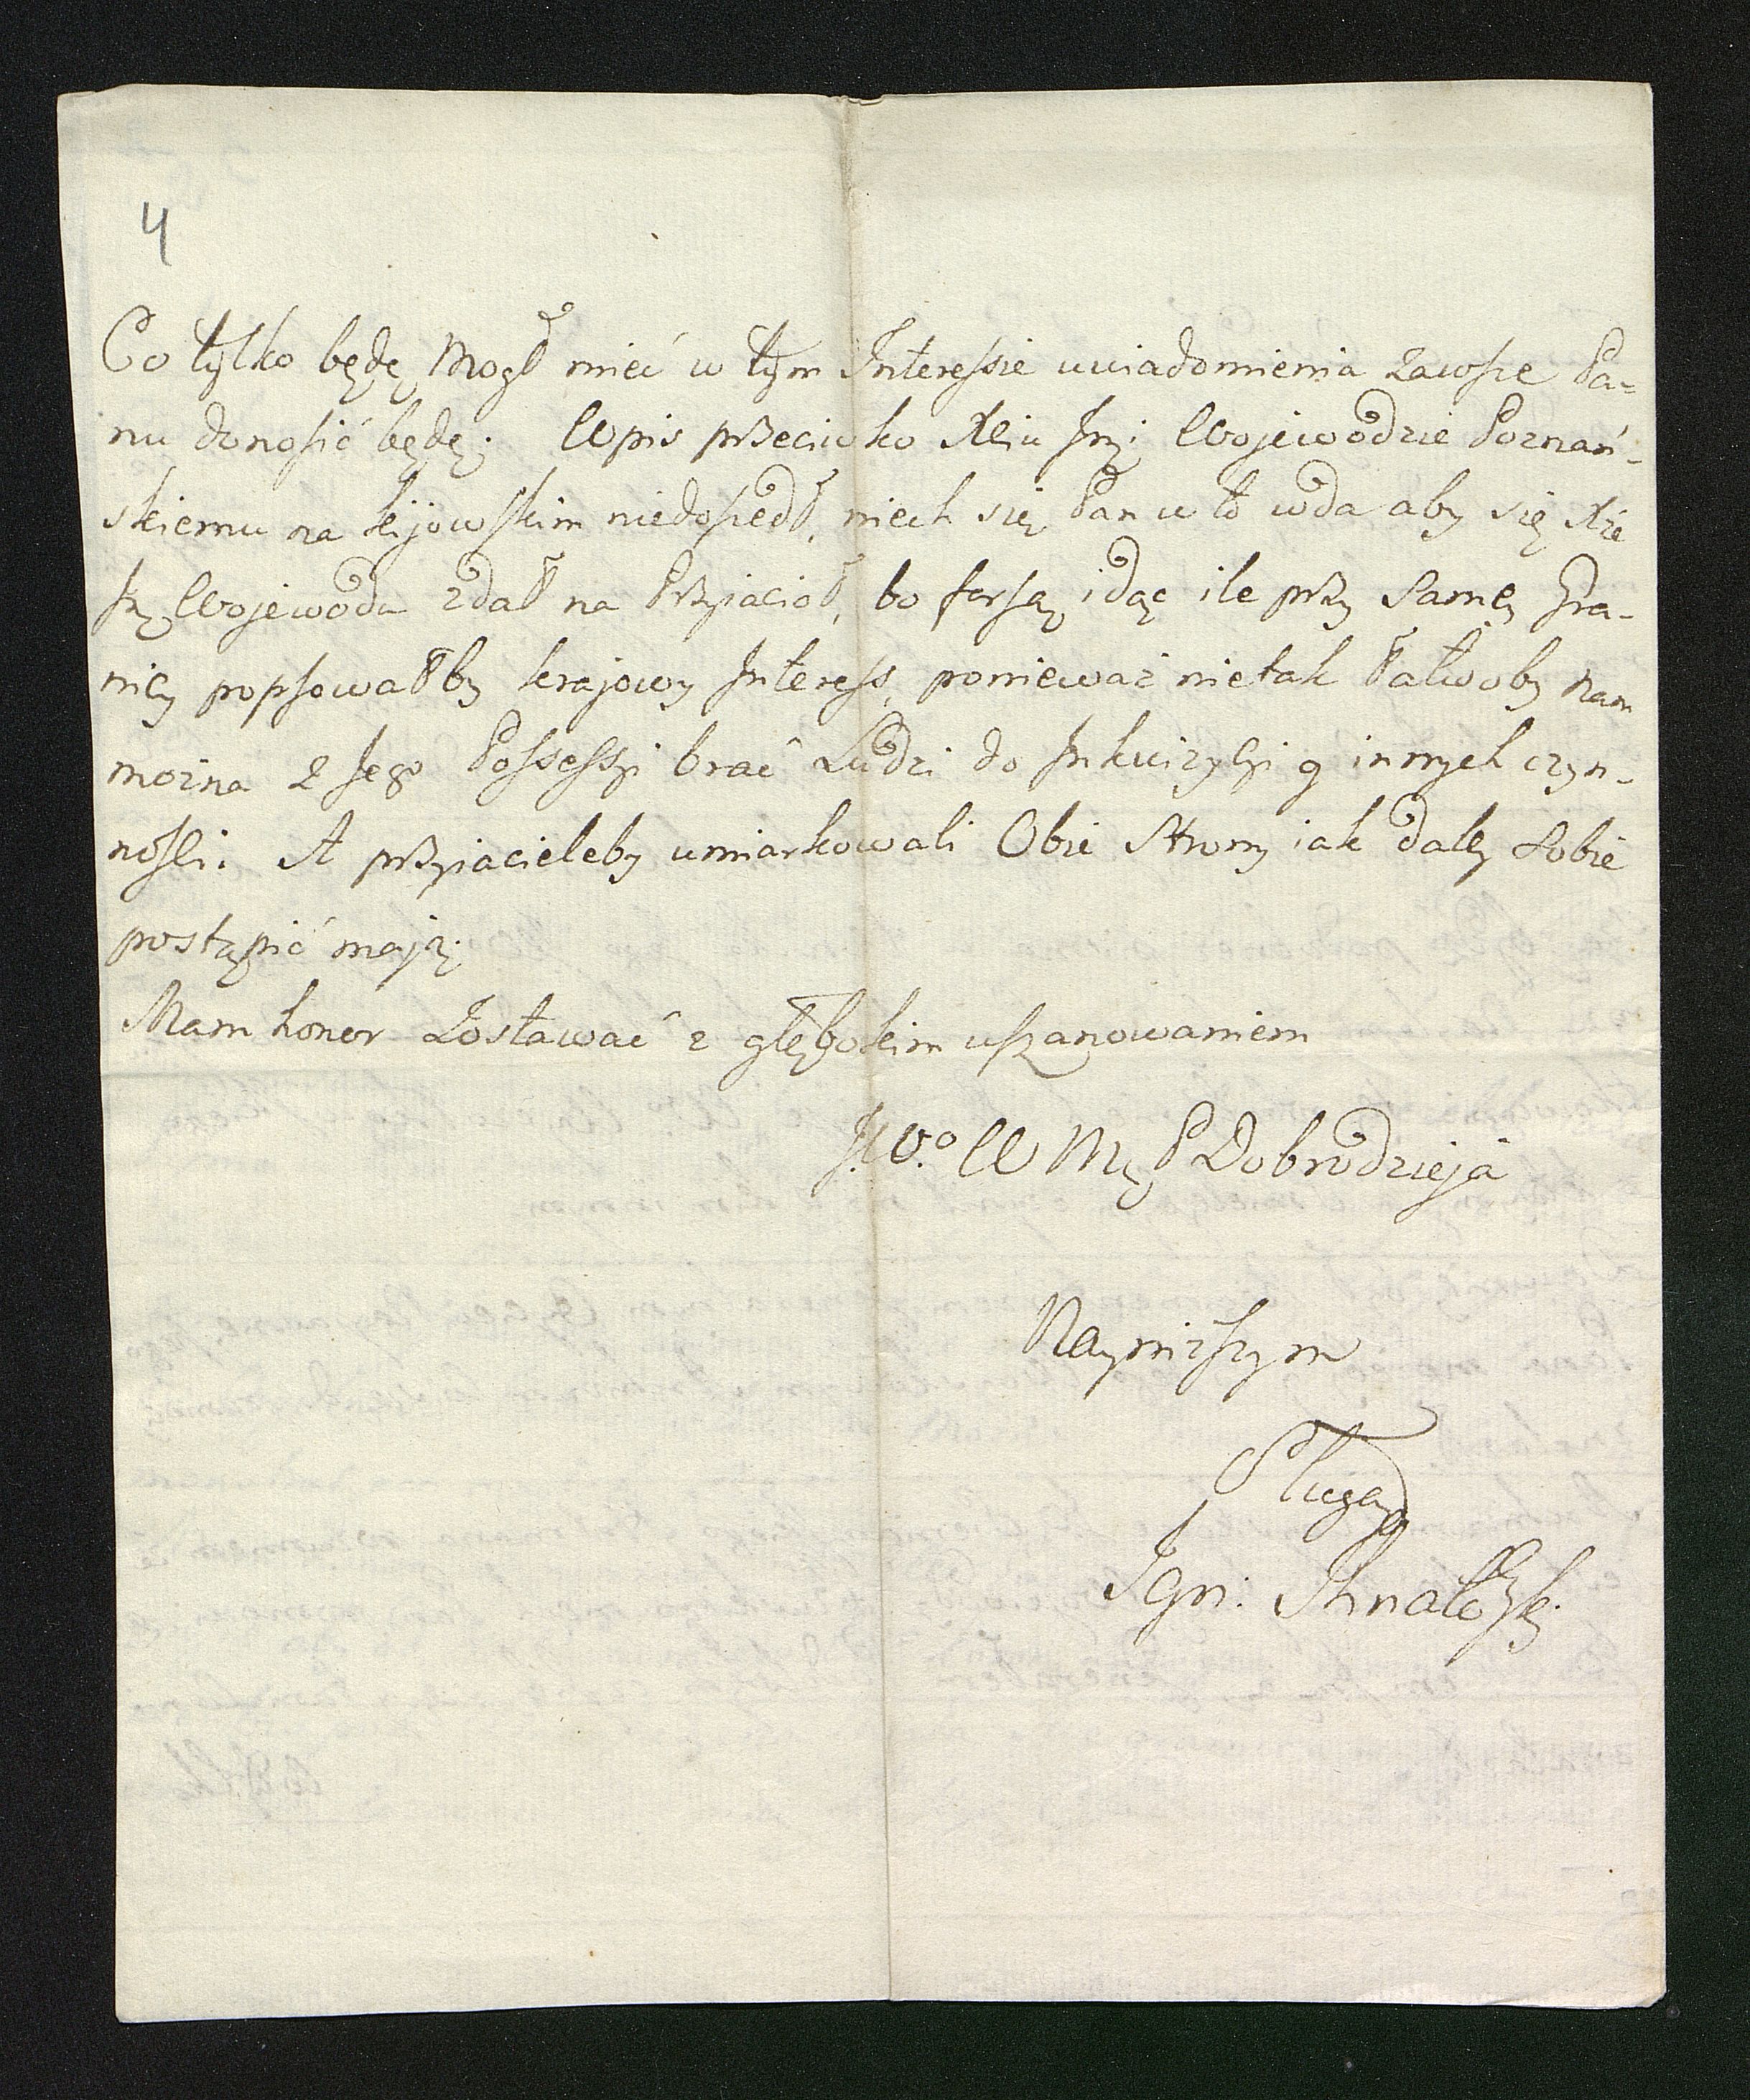 4
Co tylko będę Mogł mieć w tym Interessie uwiadomienia zawsze Pa-
nu donosić będę. Wpis przeciwko Xciu Jmci Wojewodzie Poznań-
skiemu na kijowskim niedoszedł, niech się Pan w to wda aby się Xże
Jmć Wojewoda zdał na Przyjacioł, bo forsą idąc ile przy Samey Gra-
nicy popsowałby krajowy Interess, ponieważ nietak łatwoby nam
można z Jego Possessyi brać Ludzi do Inkwizycyi y innych czyn-
nosci. A przyiacieleby umiarkowali Obie Strony iak daley Sobie
postąpić mają.
Mam honor Zostawać z głębokim uszanowaniem
W Mć P Dobrodzieja
Nayniższym
Sługą
Ign: